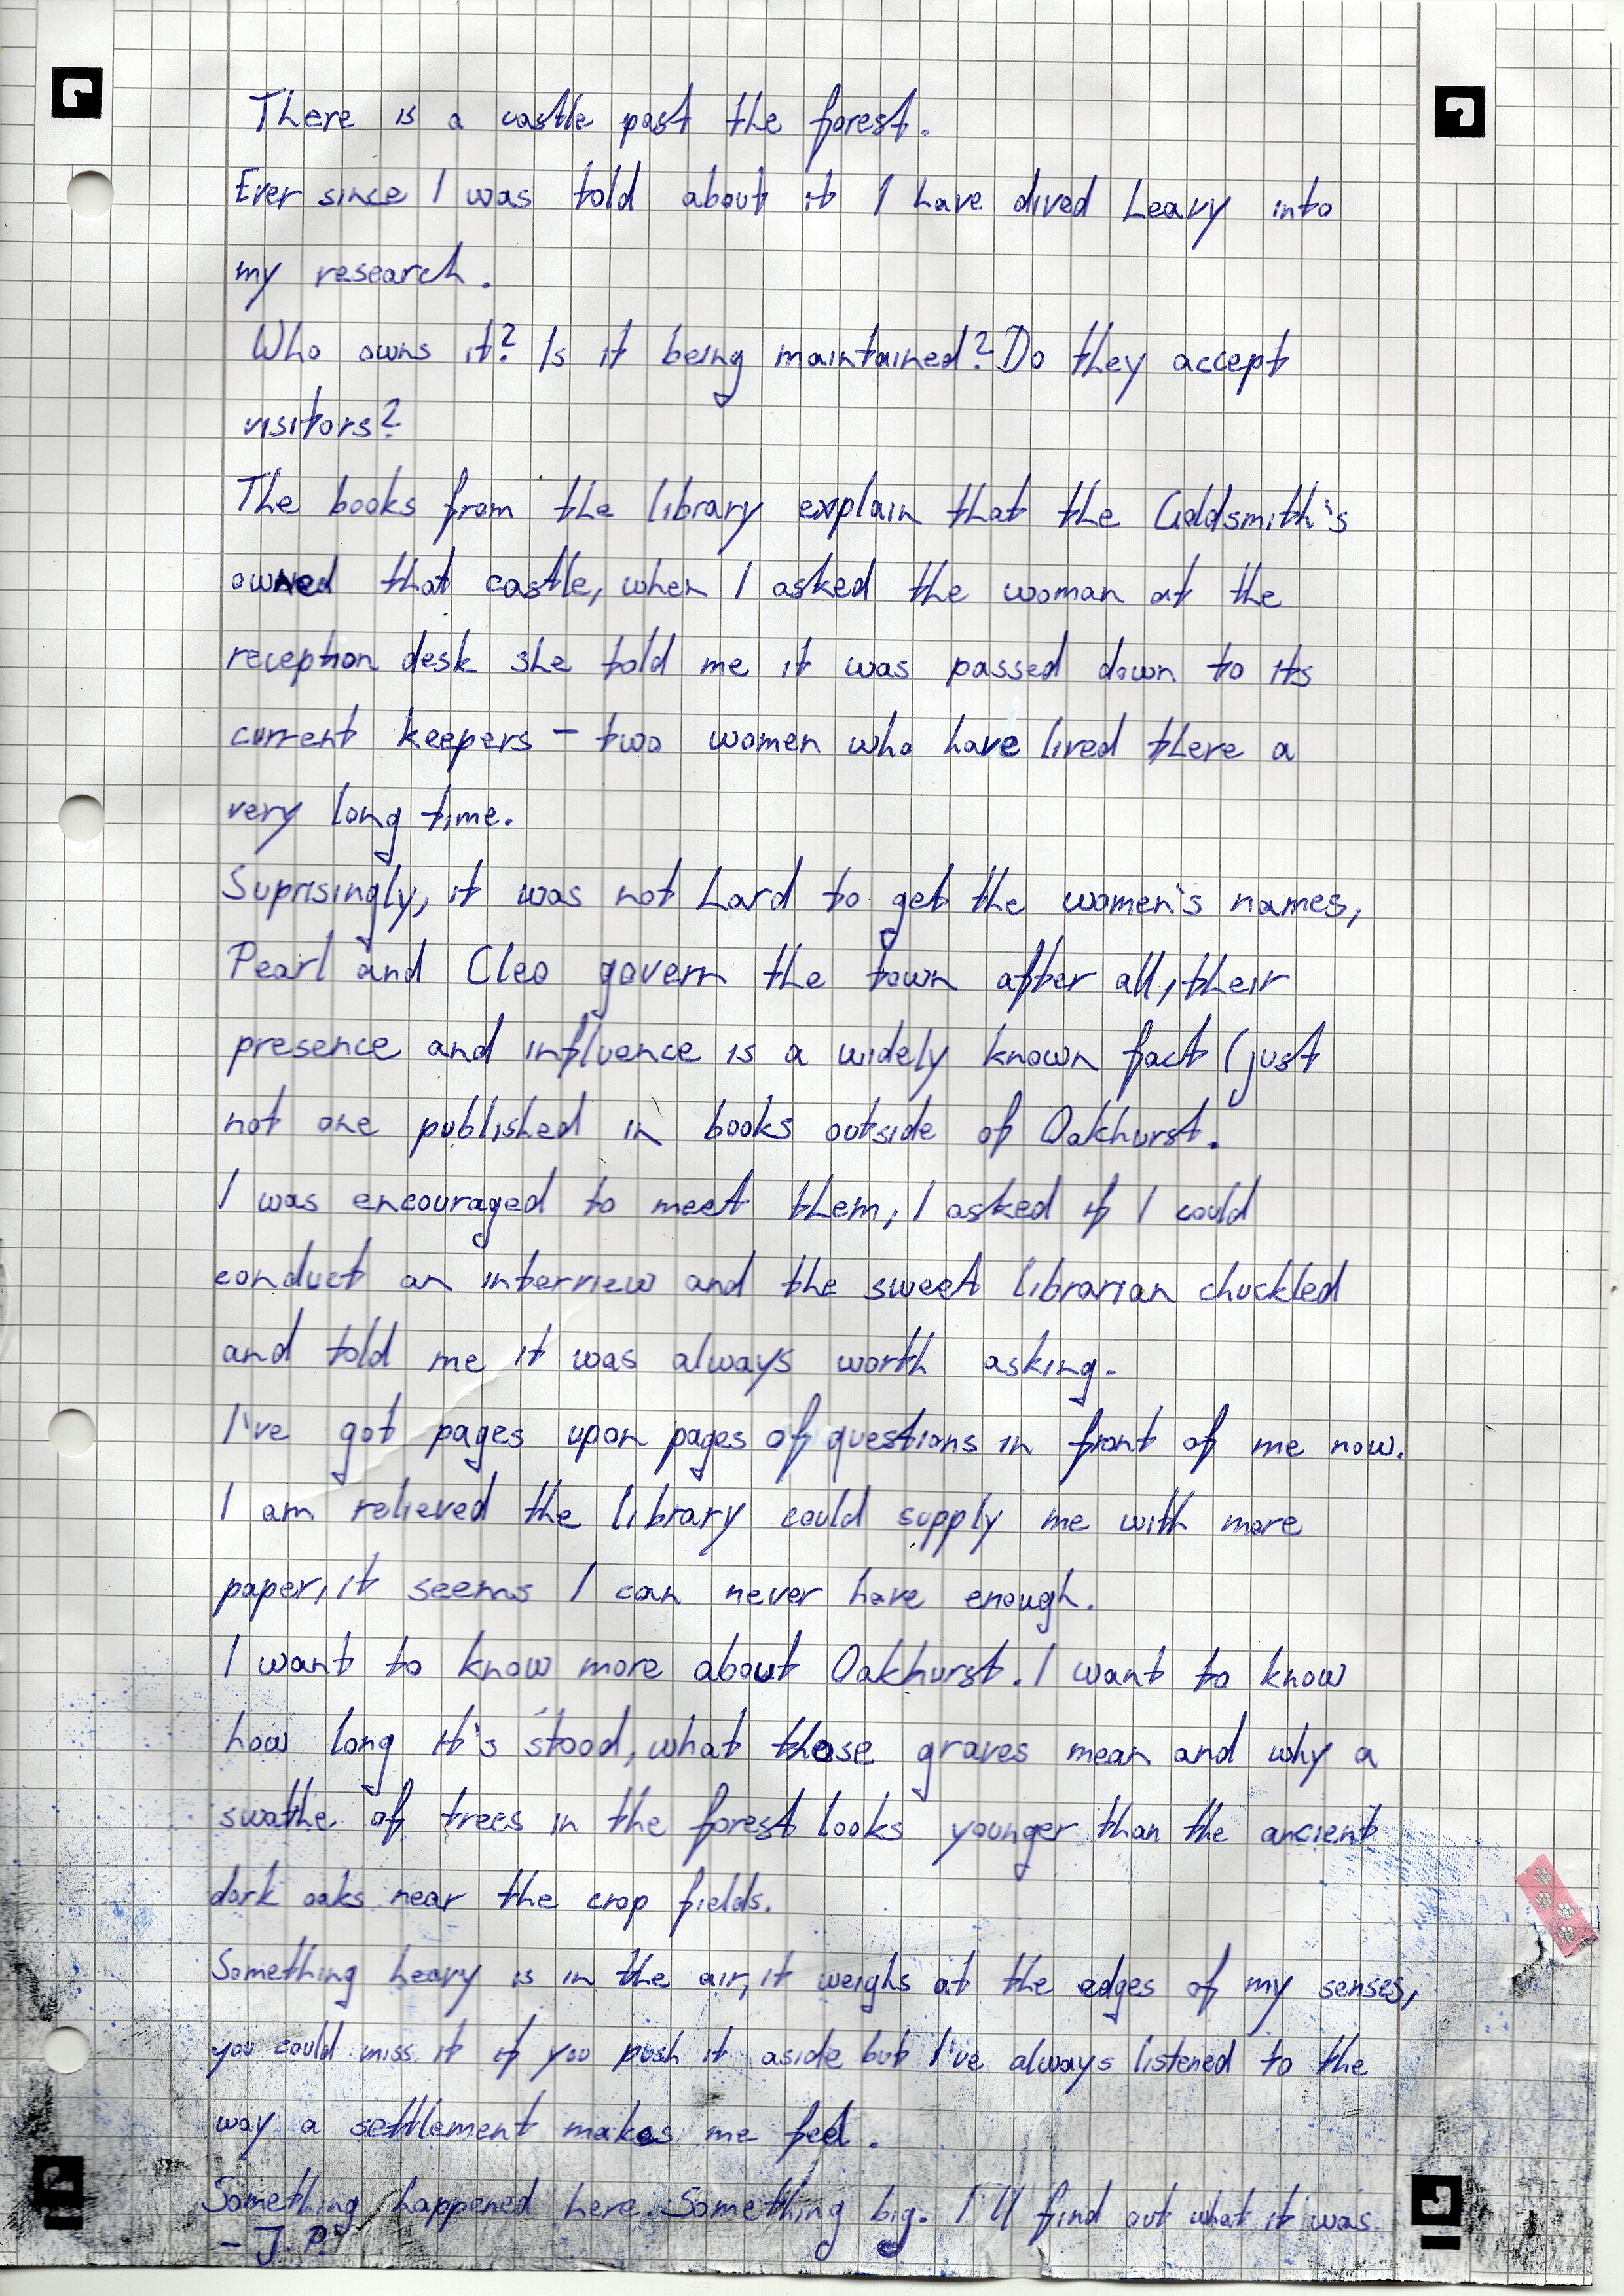 There is a castle past the forest.
Ever since I was told about it I have dived heavy into
my research.
Who owns it? Is it being maintained? Do they accept
visitors?
The books from the library explain that the Goldsmith's
owned that castle, when I asked the woman at the
reception desk she told me it was passed down to its
current keepers - two women who have lived there a
very long time.
Suprisingly, it was not hard to get the women's names,
Pearl and Cleo govern the town after all, their
presence and influence is a widely known fact (just
not one published in books outside of Oakhurst.
I was encouraged to meet them, I asked if I could
conduct an interview and the sweet librarian chuckled
and told me it was always worth asking.
I've got pages upon pages of questions in front of me now.
I am relieved the library could supply me with more
paper, it seems I can never have enough.
I want to know more about Oakhurst. I want to know
how long it's stood, what those graves mean and why a
swathe of trees in the forest looks younger than the ancient
dark oaks near the crop fields.
Something heavy is in the air, it weighs at the edges of my senses,
you could miss it if you push it aside but I've always listened to the
way a settlement makes me feel.
Something happened here. Something big. I'll find out what it was.
- J.P.